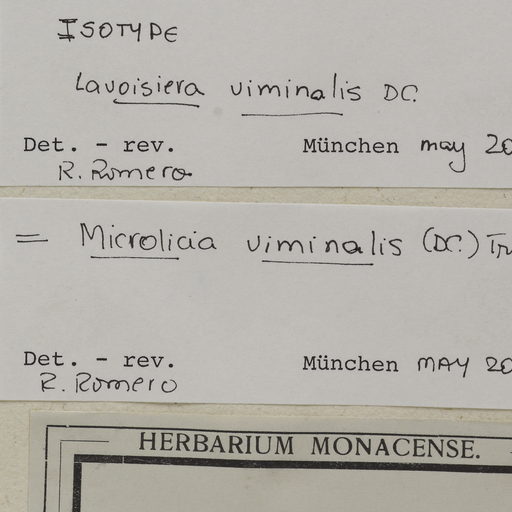 ISOTYPE
Lavoisiera viminalis DC.
Det. - rev. München may 20
R. Romero
= Microlicia viminalis (DC.) Tr
Det. - rev. München MAY 20
R. Romero
HERBARIUM MONACENSE.